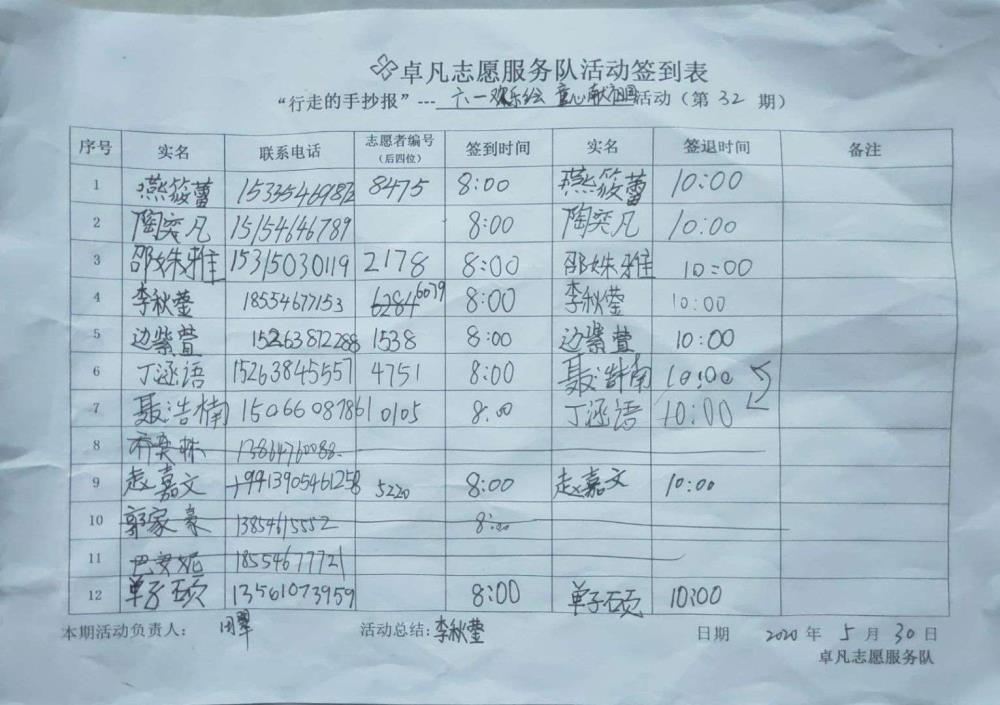 卓凡志愿服务队活动签到表
“行走的手抄报”---六一欢乐绘 童心献祖国活动（第 32 期）
序号 实名 联系电话 志愿者编号（后四位） 签到时间 实名 签退时间 备注
1 燕筱蕾 15335469872 8475 8:00 燕筱蕾 10:00
2 陶奕凡 15154646789 8:00 陶奕凡 10:00
3 邵姝雅 15315030119 2178 8:00 邵姝雅 10:00
4 李秋莹 18554677153 6284 6079 8:00 李秋莹 10:00
5 边紫萱 15263872288 1538 8:00 边紫萱 10:00
6 丁涵语 15263845557 4751 8:00 聂浩楠 10:00
7 聂浩楠 15066087861 0105 8:00 丁涵语 10:00
8 13864760088
9 赵嘉文 5220 8:00 赵嘉文 10:00
10 郭家豪 13854615552 8:00
11 18554677721
12 单子硕 13561073959 8:00 单子硕 10:00
本期活动负责人： 活动总结: 李秋莹 日期 2020 年 5 月 30 日
卓凡志愿服务队